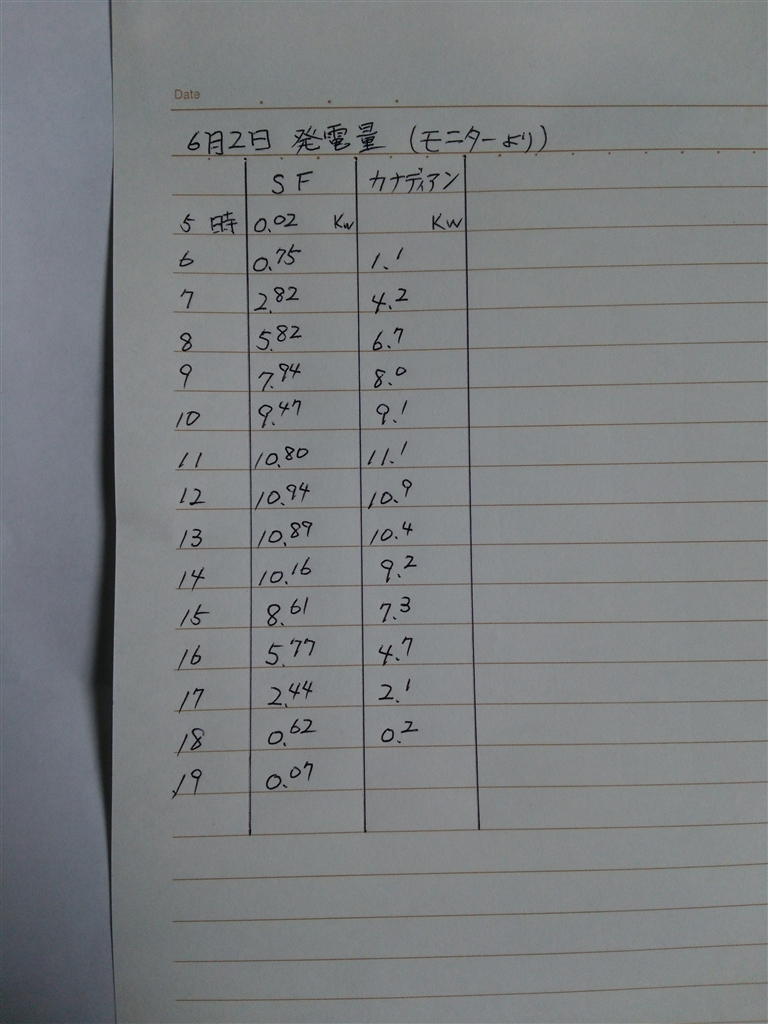 Date
6月2日 発電量 (モニターより)
SF カナディアン
5時 0.02 Kw Kw
6 0.75 1.1
7 2.82 4.2
8 5.82 6.7
9 7.94 8.0
10 9.47 9.1
11 10.80 11.1
12 10.94 10.9
13 10.89 10.4
14 10.16 9.2
15 8.61 7.3
16 5.77 4.7
17 2.44 2.1
18 0.62 0.2
19 0.07